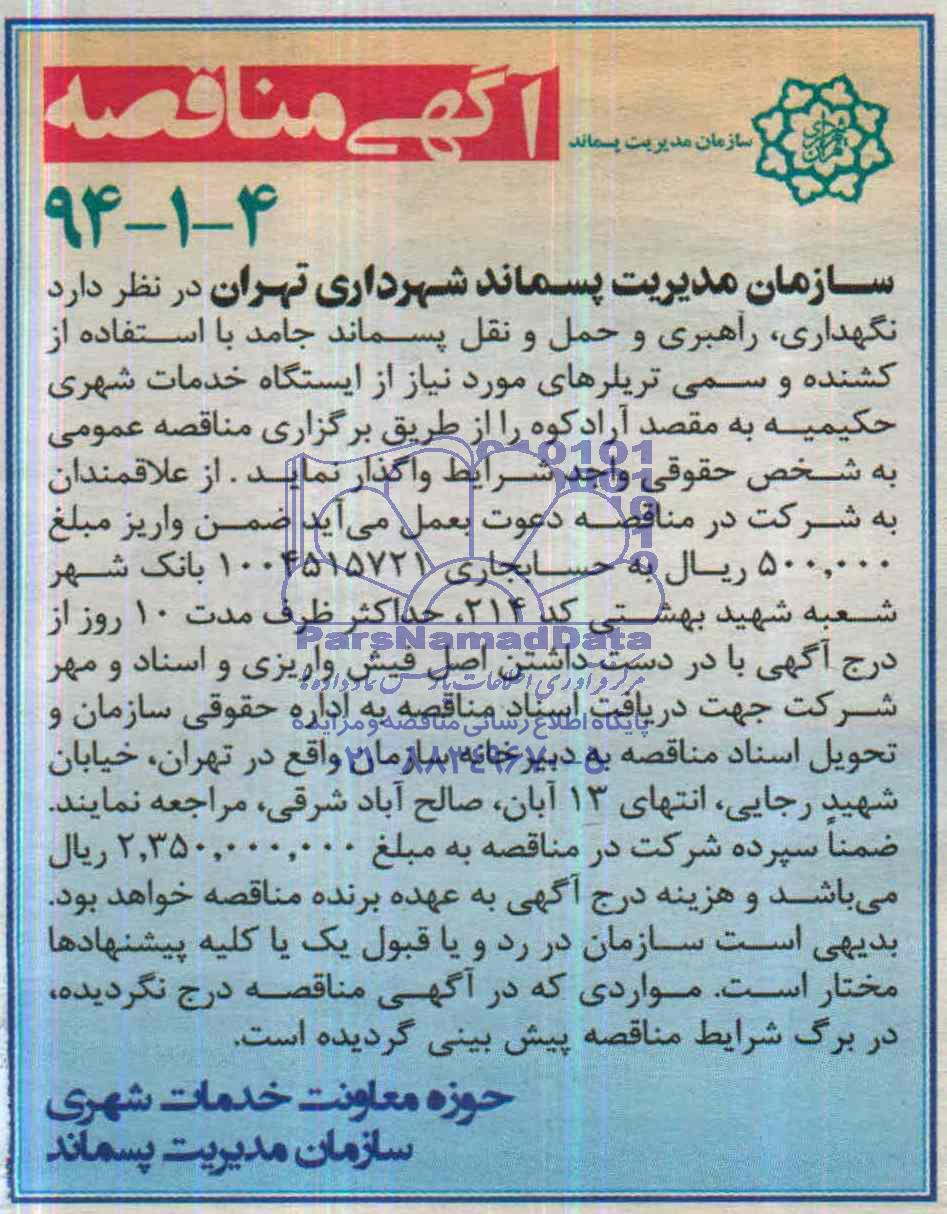 سازمان مدیریت پسماند
آگهی مناقصه
۹۴-۱-۴
سازمان مدیریت پسماند شهرداری تهران در نظر دارد
نگهداری، راهبری و حمل و نقل پسماند جامد با استفاده از
کشنده و سمی تریلرهای مورد نیاز از ایستگاه خدمات شهری
حکیمیه به مقصد آرادکوه را از طریق برگزاری مناقصه عمومی
به شخص حقوقی واجد شرایط واگذار نماید . از علاقمندان
به شرکت در مناقصه دعوت بعمل می‌آید ضمن واریز مبلغ
۵۰۰,۰۰۰ ریال به حسابجاری ۱۰۰۴۵۱۵۷۲۱ بانک شهر
شعبه شهید بهشتی کد ۲۱۴، حداکثر ظرف مدت ۱۰ روز از
درج آگهی با در دست داشتن اصل فیش واریزی و اسناد و مهر
شرکت جهت دریافت اسناد مناقصه به اداره حقوقی سازمان و
تحویل اسناد مناقصه به دبیرخانه سازمان واقع در تهران، خیابان
شهید رجایی، انتهای ۱۳ آبان، صالح آباد شرقی، مراجعه نمایند.
ضمناً سپرده شرکت در مناقصه به مبلغ ۲,۳۵۰,۰۰۰,۰۰۰ ریال
می‌باشد و هزینه درج آگهی به عهده برنده مناقصه خواهد بود.
بدیهی است سازمان در رد و یا قبول یک یا کلیه پیشنهادها
مختار است. مواردی که در آگهی مناقصه درج نگردیده،
در برگ شرایط مناقصه پیش بینی گردیده است.
حوزه معاونت خدمات شهری
سازمان مدیریت پسماند
ParsNamadData
پایگاه اطلاع رسانی مناقصه و مزایده